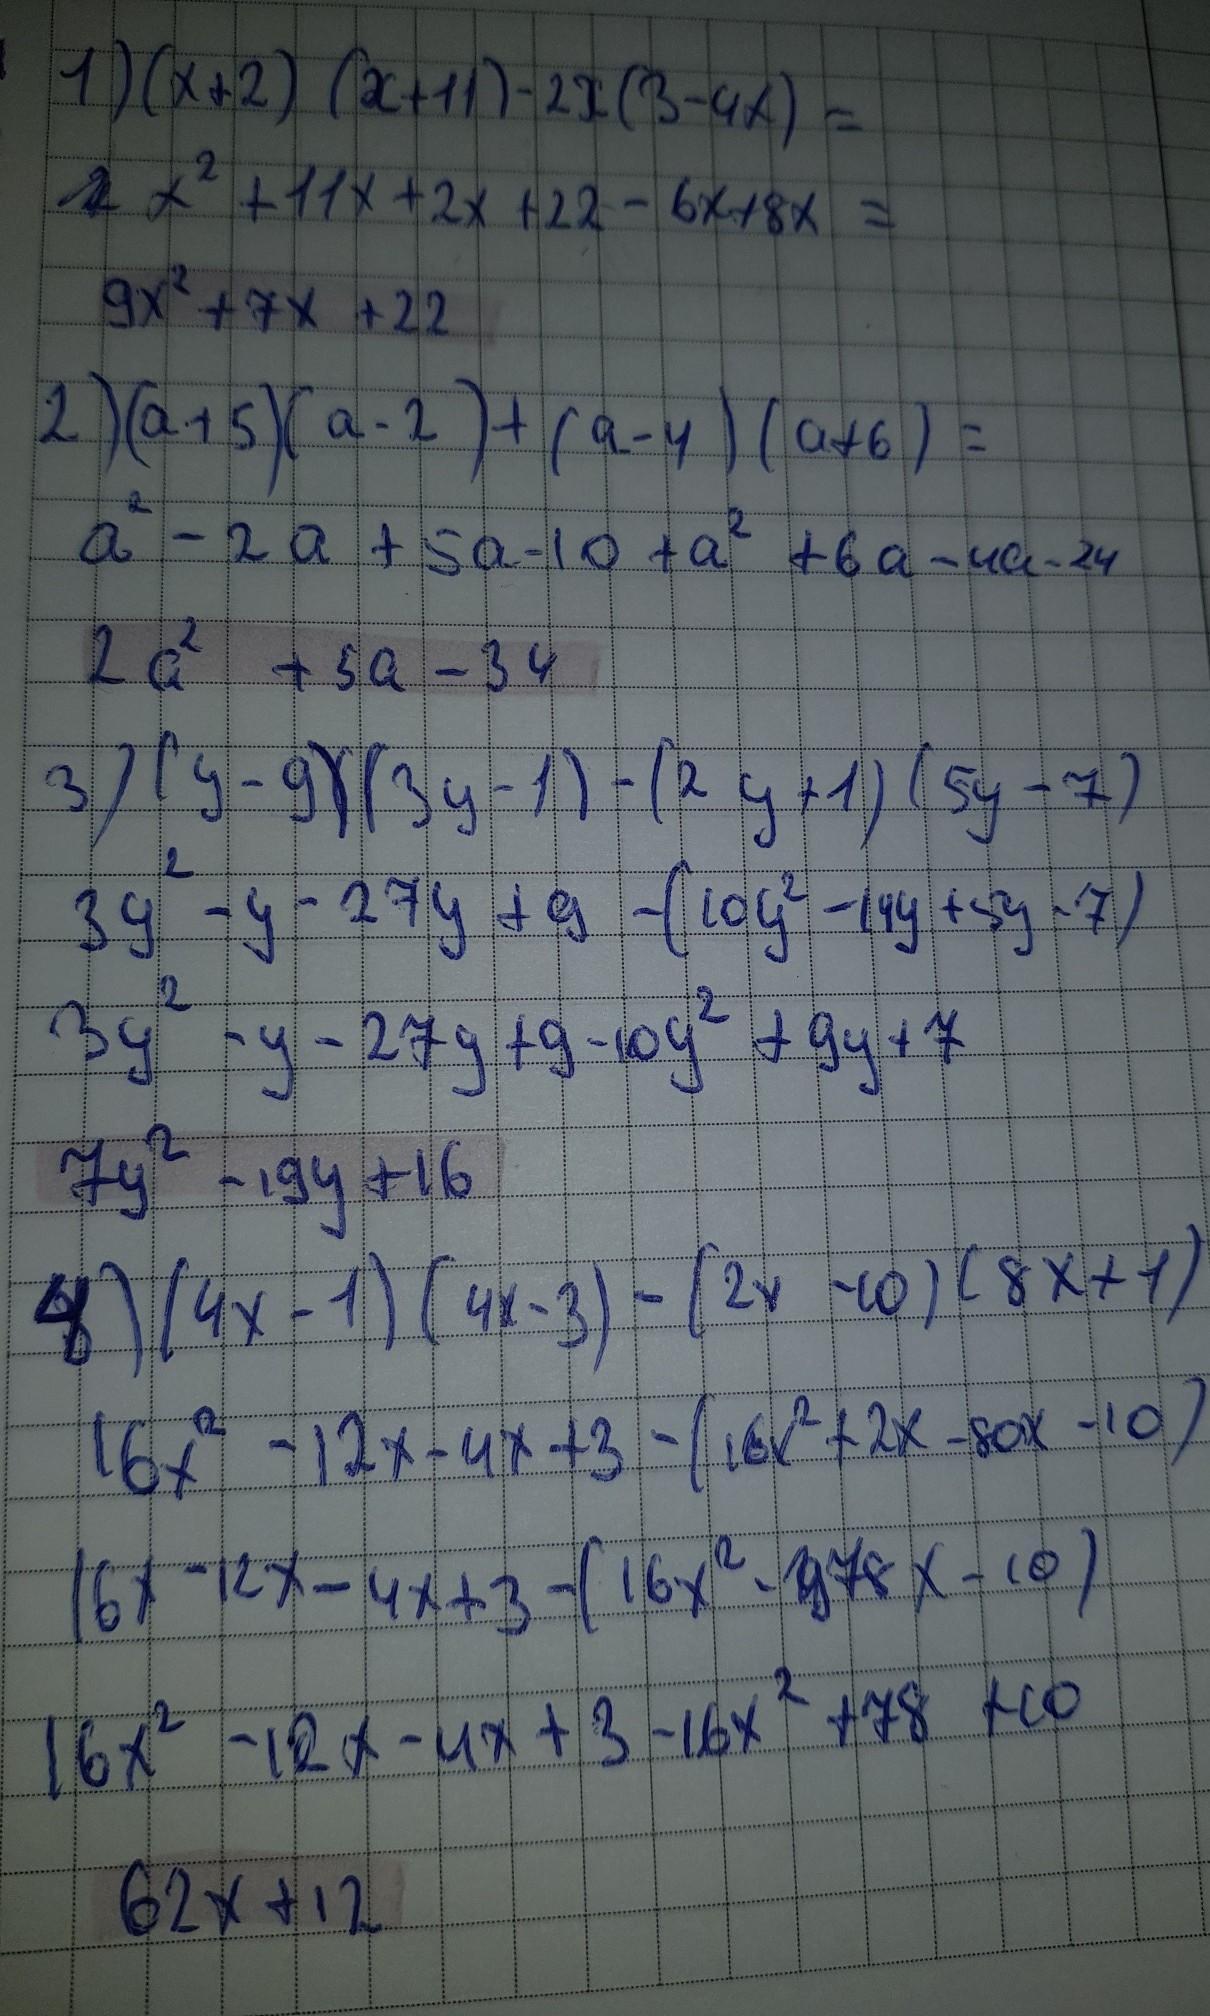 1) (x+2) (x+11) - 2x(3-4x) =
x² + 11x + 2x + 22 - 6x + 8x =
9x² + 7x + 22
2) (a+5)(a-2) + (a-4)(a+6) =
a² - 2a + 5a - 10 + a² + 6a - 4a - 24
2a² + 5a - 34
3) (y-9)(3y-1) - (2y+1)(5y-7)
3y² - y - 27y + 9 - (10y² - 14y + 5y - 7)
3y² - y - 27y + 9 - 10y² + 9y + 7
7y² - 19y + 16
4) (4x-1)(4x-3) - (2x-10)(8x+1)
16x² - 12x - 4x + 3 - (16x² + 2x - 80x - 10)
16x - 12x - 4x + 3 - (16x² - 78x - 10)
16x² - 12x - 4x + 3 - 16x² + 78 + 10
62x + 12